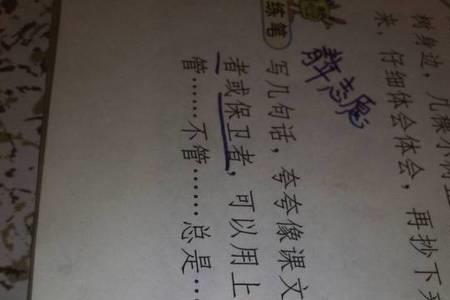 树身边，几
来，仔细体会体会，再抄下
练笔
志愿
写几句话，夸夸像课文
者或保卫者，可以用上
管……不管……总是…